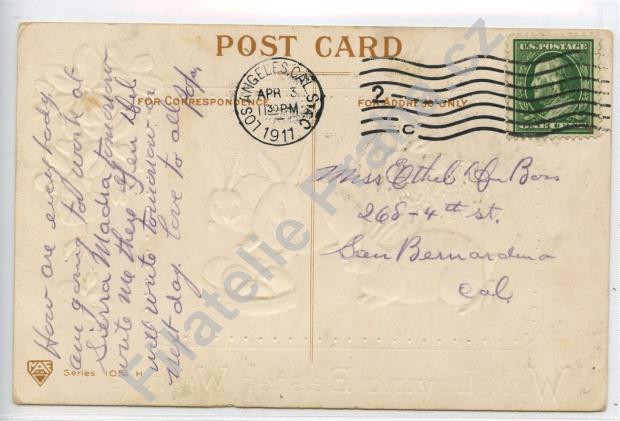 POST CARD
FOR CORRESPONDENCE
FOR ADDRESS ONLY
LOS ANGELES, CAL. STA. C
APR 3
30 PM
1911
2
C
U.S. POSTAGE
ONE CENT
Miss Ethel Du Bois
268-4th St.
San Bernardino
Cal
How are everybody.
am going to work at
Sierra Madra tomorrow
write me there if you
will write tomorrow or
next day. love to all
Series 105 H
With Loving Easter Wi
Filatelie Praha cz
12